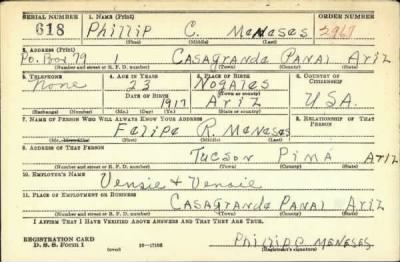 SERIAL NUMBER 1. NAME (Print)
618 Phillip C. Meneses 2967
(First) (Middle) (Last)
2. ADDRESS (Print)
P.O. Box 79 1 CASAGRANDE (PANA) Ariz
(Number and street or R. F. D. number) (Town) (County) (State)
3. TELEPHONE 4. AGE IN YEARS 5. PLACE OF BIRTH 6. COUNTRY OF CITIZENSHIP
None 23 Nogales
DATE OF BIRTH (Town or county)
1917 Ariz U.S.A.
(Exchange) (Number) (Mo.) (Day) (Yr.) (State or country)
7. NAME OF PERSON WHO WILL ALWAYS KNOW YOUR ADDRESS 8. RELATIONSHIP OF THAT PERSON
Felipe R. Meneses
(First) (Middle) (Last)
9. ADDRESS OF THAT PERSON
Tucson Pima Ariz
(Number and street or R. F. D. number) (Town) (County) (State)
10. EMPLOYER'S NAME
Vensie & Vensie
11. PLACE OF EMPLOYMENT OR BUSINESS
CASAGRANDE PANAL Ariz
(Number and street or R. F. D. number) (Town) (County) (State)
I AFFIRM THAT I HAVE VERIFIED ABOVE ANSWERS AND THAT THEY ARE TRUE.
REGISTRATION CARD
D. S. S. Form 1 (over) Phillip C Meneses
(Registrant's signature)